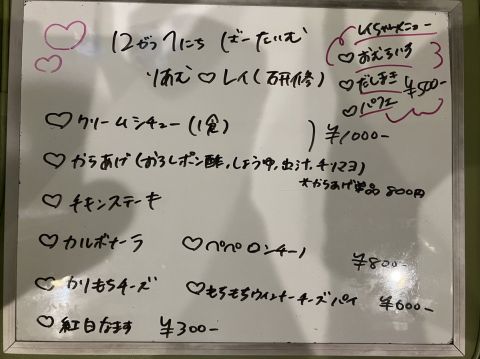 12がつ7にち ばーたいむ
りあむ♡レイ(研修)
レイちゃんメニュー
♡おむらいす
♡だしまき ¥500-
♡パフェ
♡クリームシチュー(1食)
♡からあげ(おろしポン酢,しょうゆ,出汁,チリマヨ) ¥1000-
*からあげ単品 800円
♡チキンステーキ
♡カルボナーラ ♡ペペロンチーノ ¥800-
♡かりもちチーズ ♡もちもちウィンナーチーズパイ ¥600-
♡紅白なます ¥300-